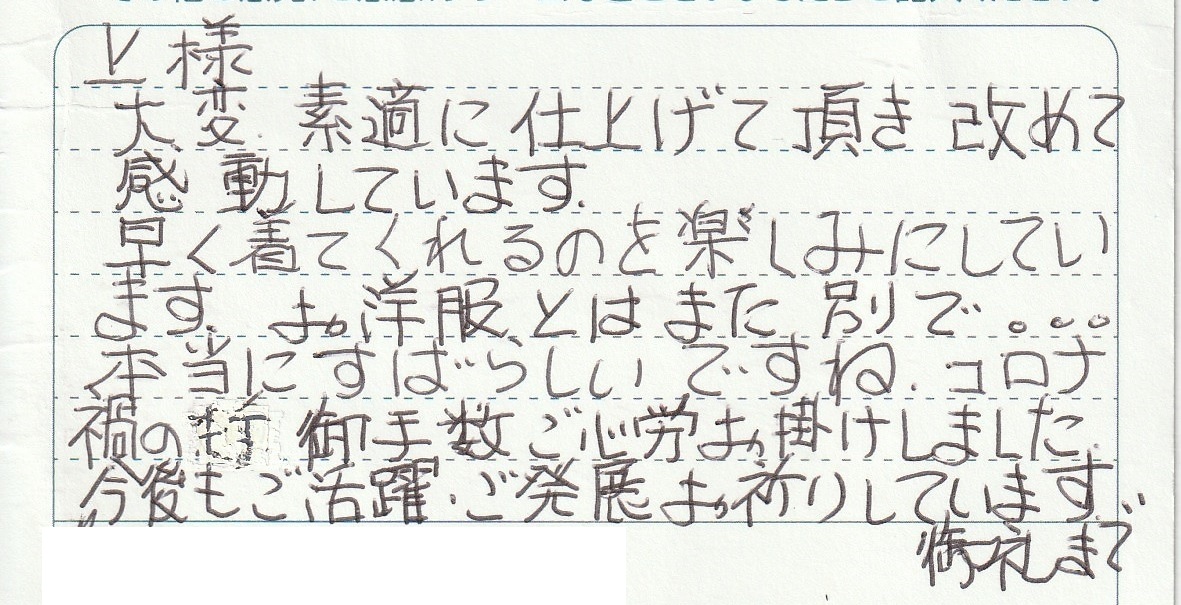 上 様
大変 素適に 仕上げて 頂き 改めて
感動しています.
早く着てくれるのを楽しみにしてい
ます. お洋服とは また 別で。。。
本当に すばらしい ですね. コロナ
禍の 御手数 ご心労お掛けしました.
今後もご活躍.ご発展お祈りしています.
御礼まで